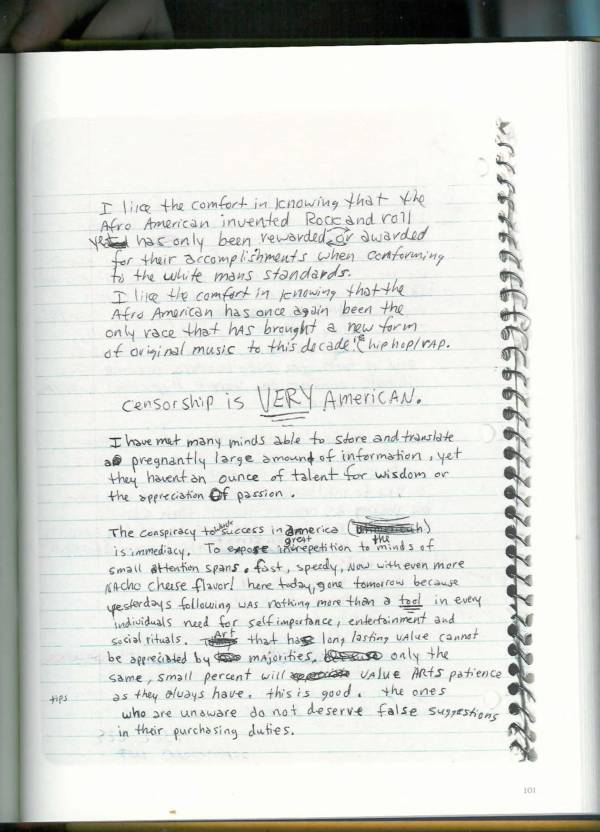 I like the comfort in knowing that the
Afro American invented Rock and roll
yet has only been rewarded or awarded
for their accomplishments when conforming
to the white mans standards.
I like the comfort in knowing that the
Afro American has once again been the
only race that has brought a new form
of original music to this decade (hip hop/rap.
censorship is VERY American.
I have met many minds able to store and translate
a pregnantly large amount of information, yet
they havent an ounce of talent for wisdom or
the appreciation of passion.
The conspiracy towards success in america
is immediacy. To expose in great repetition to the minds of
small attention spans. fast, speedy, Now with even more
NACho cheese flavor! here today, gone tomorrow because
yesterdays following was nothing more than a tool in every
individuals need for self importance, entertainment and
social rituals. Art that has long lasting value cannot
be appreciated by majorities. only the
same, small percent will value ARts patience
as they always have. this is good. the ones
tips
who are unaware do not deserve false suggestions
in their purchasing duties.
101